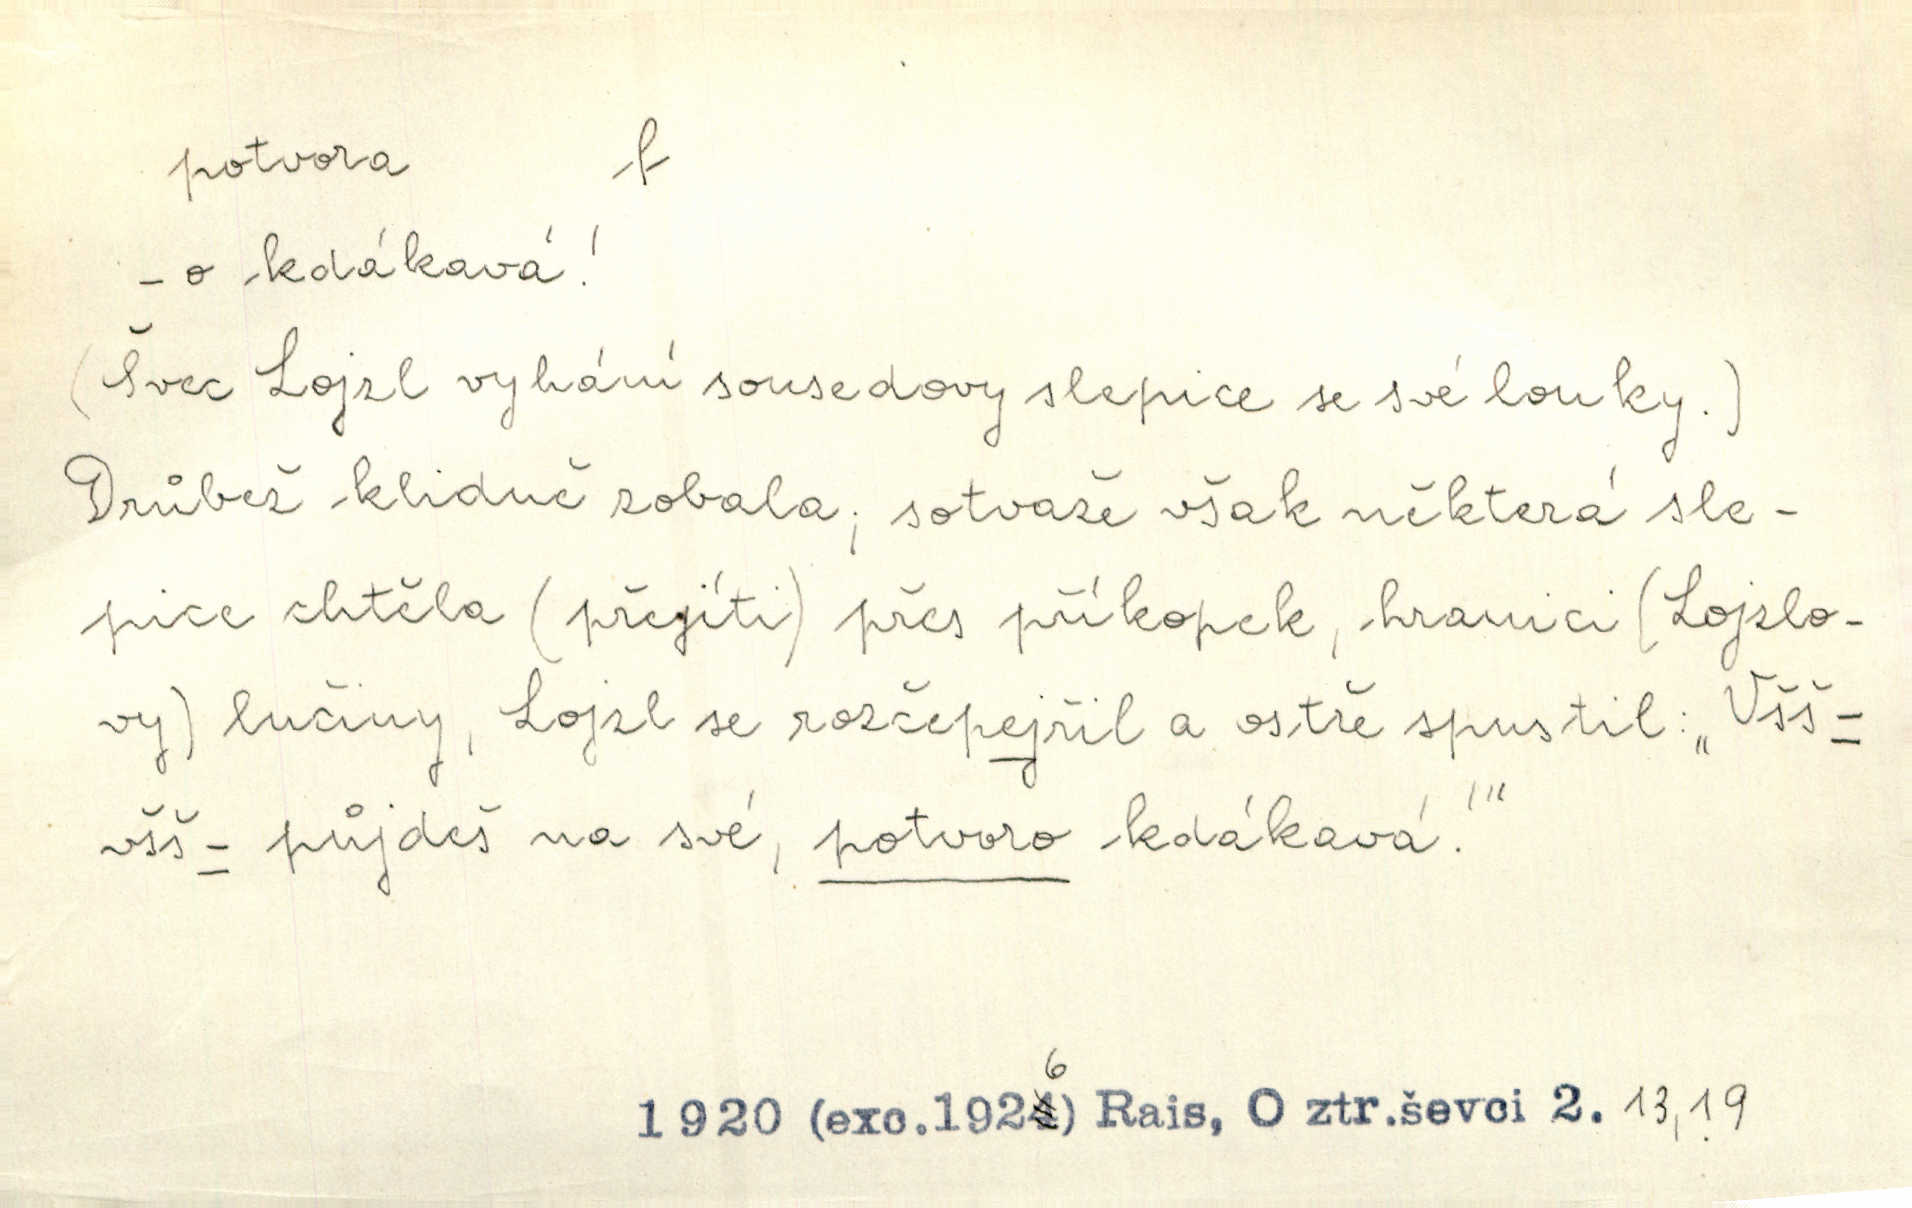 potvora f
- o kdákavá!
(Švec Lojzl vyhání sousedovy slepice se své louky.)
Drůbež klidně zobala; sotvaže však některá sle-
pice chtěla (přejíti) přes příkopek, hranici (Lojzlo-
vy) lučiny, Lojzl se rozčepejřil a ostře spustil: „Všš=
všš= půjdeš na své, potvoro kdákavá!"
6
1920 (exc.1924) Rais, O ztr.ševci 2. 13,19